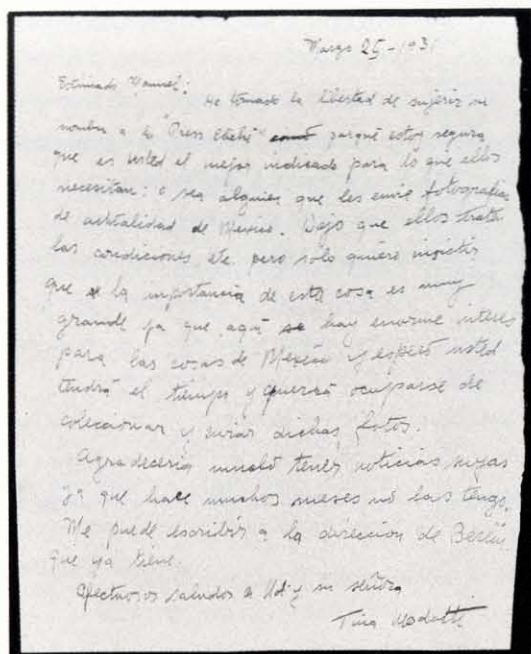 Marzo 25 - 1931
Estimado Manuel:
He tomado la libertad de sujerir su
nombre a la "Press Cliché" porqué estoy segura
que es usted el mejor indicado para lo que ellos
necesitan: o sea alguien que les envie fotografias
de actualidad de Mexico. Dejo que ellos traten
las condiciones etc. pero solo quiero insistir
que la importancia de esta cosa es muy
grande ya que aqui hay enorme interes
para las cosas de Mexico y espero usted
tendrá el tiempo y querrá ocuparse de
coleccionar y enviar dichas fotos.
Agradeceria mucho tener noticias suyas
ya que hace muchos meses no las tengo.
Me puede escribir a la direccion de Berlin
que ya tiene.
Afectuosos saludos a Ud. y su señora
Tina Modotti